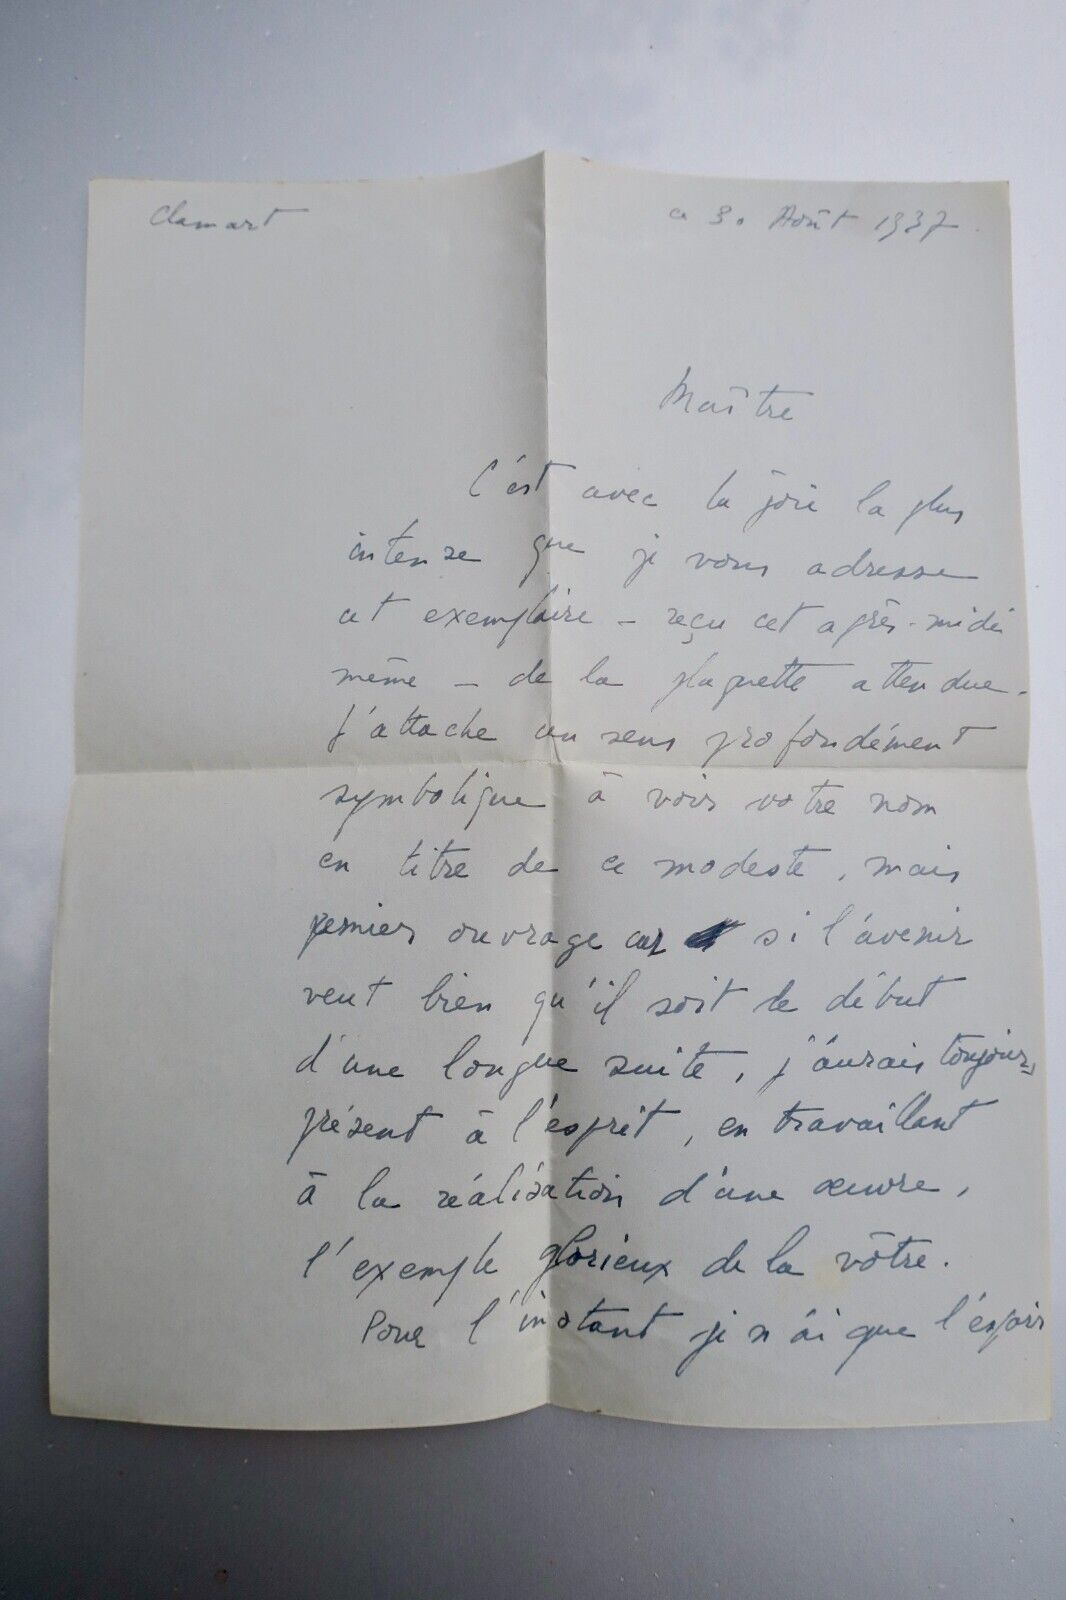 Clamart
ce 30 Août 1937
Maître
C'est avec la joie la plus
intense que je vous adresse
cet exemplaire - reçu cet après-midi
même - de la plaquette attendue.
J'attache un sens profondément
symbolique à voir votre nom
en titre de ce modeste, mais
premier ouvrage car si l'avenir
veut bien qu'il soit le début
d'une longue suite, j'aurais toujours
présent à l'esprit, en travaillant
à la réalisation d'une œuvre,
l'exemple glorieux de la vôtre.
Pour l'instant je n'ai que l'espoir